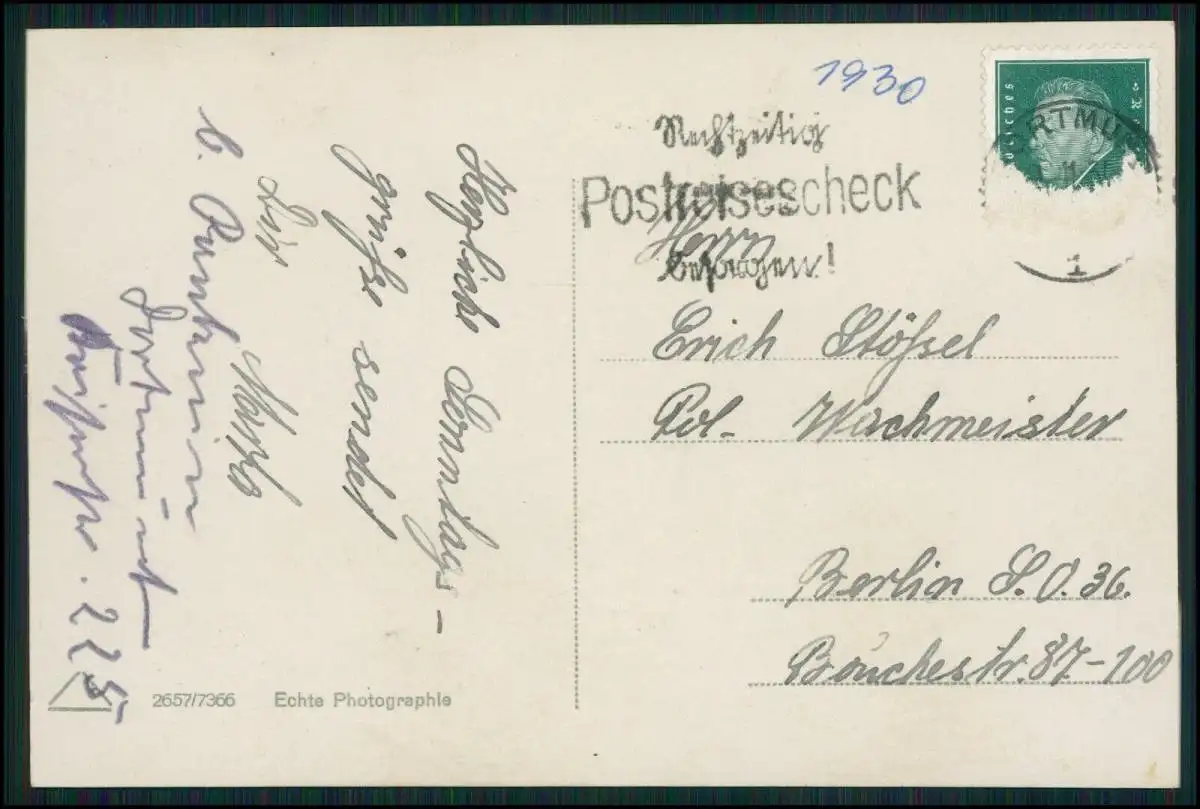 1930
Rechtzeitig
Postreisescheck
besorgen!
Herrn
Erich Stößel
Pol. Wachmeister
Berlin S.O. 36.
Bouchestr. 87-100
Herzliche Sonntags-
grüße sendet
Dir
b.
Dortmund
225
2657/7366 Echte Photographie
1